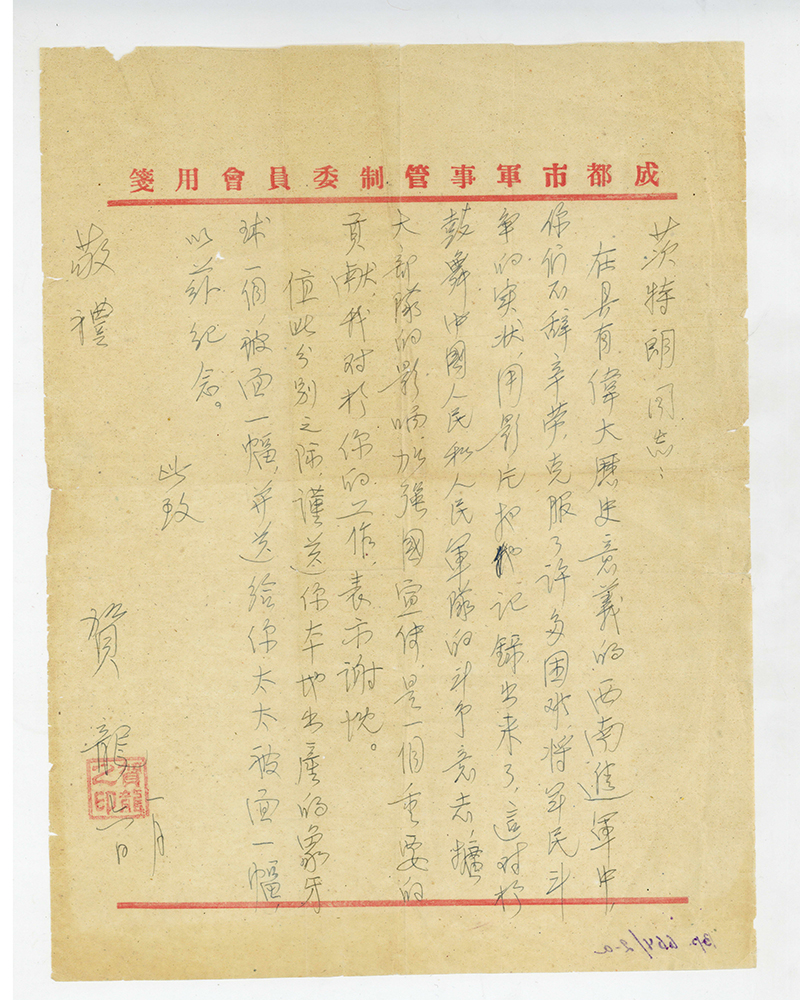 成都市軍事管制委員會用箋
茨特朗同志：
在具有偉大歷史意義的西南進軍中，
你们不辞辛劳，克服了許多困难，将军民斗
争的实状，用影片把牠记錄出来了，這对於
鼓舞中國人民和人民軍隊的斗争意志，擴
大部隊的影响加強國宣傳，是一個重要的
貢献，我对於你的工作，表示謝忱。
值此分别之际，謹送你本地出產的象牙
球一個，被面一幅，并送给你太太被面一幅，
以兹纪念。
此致
敬禮
賀龍
賀龍之印
一月
日
664/2-a